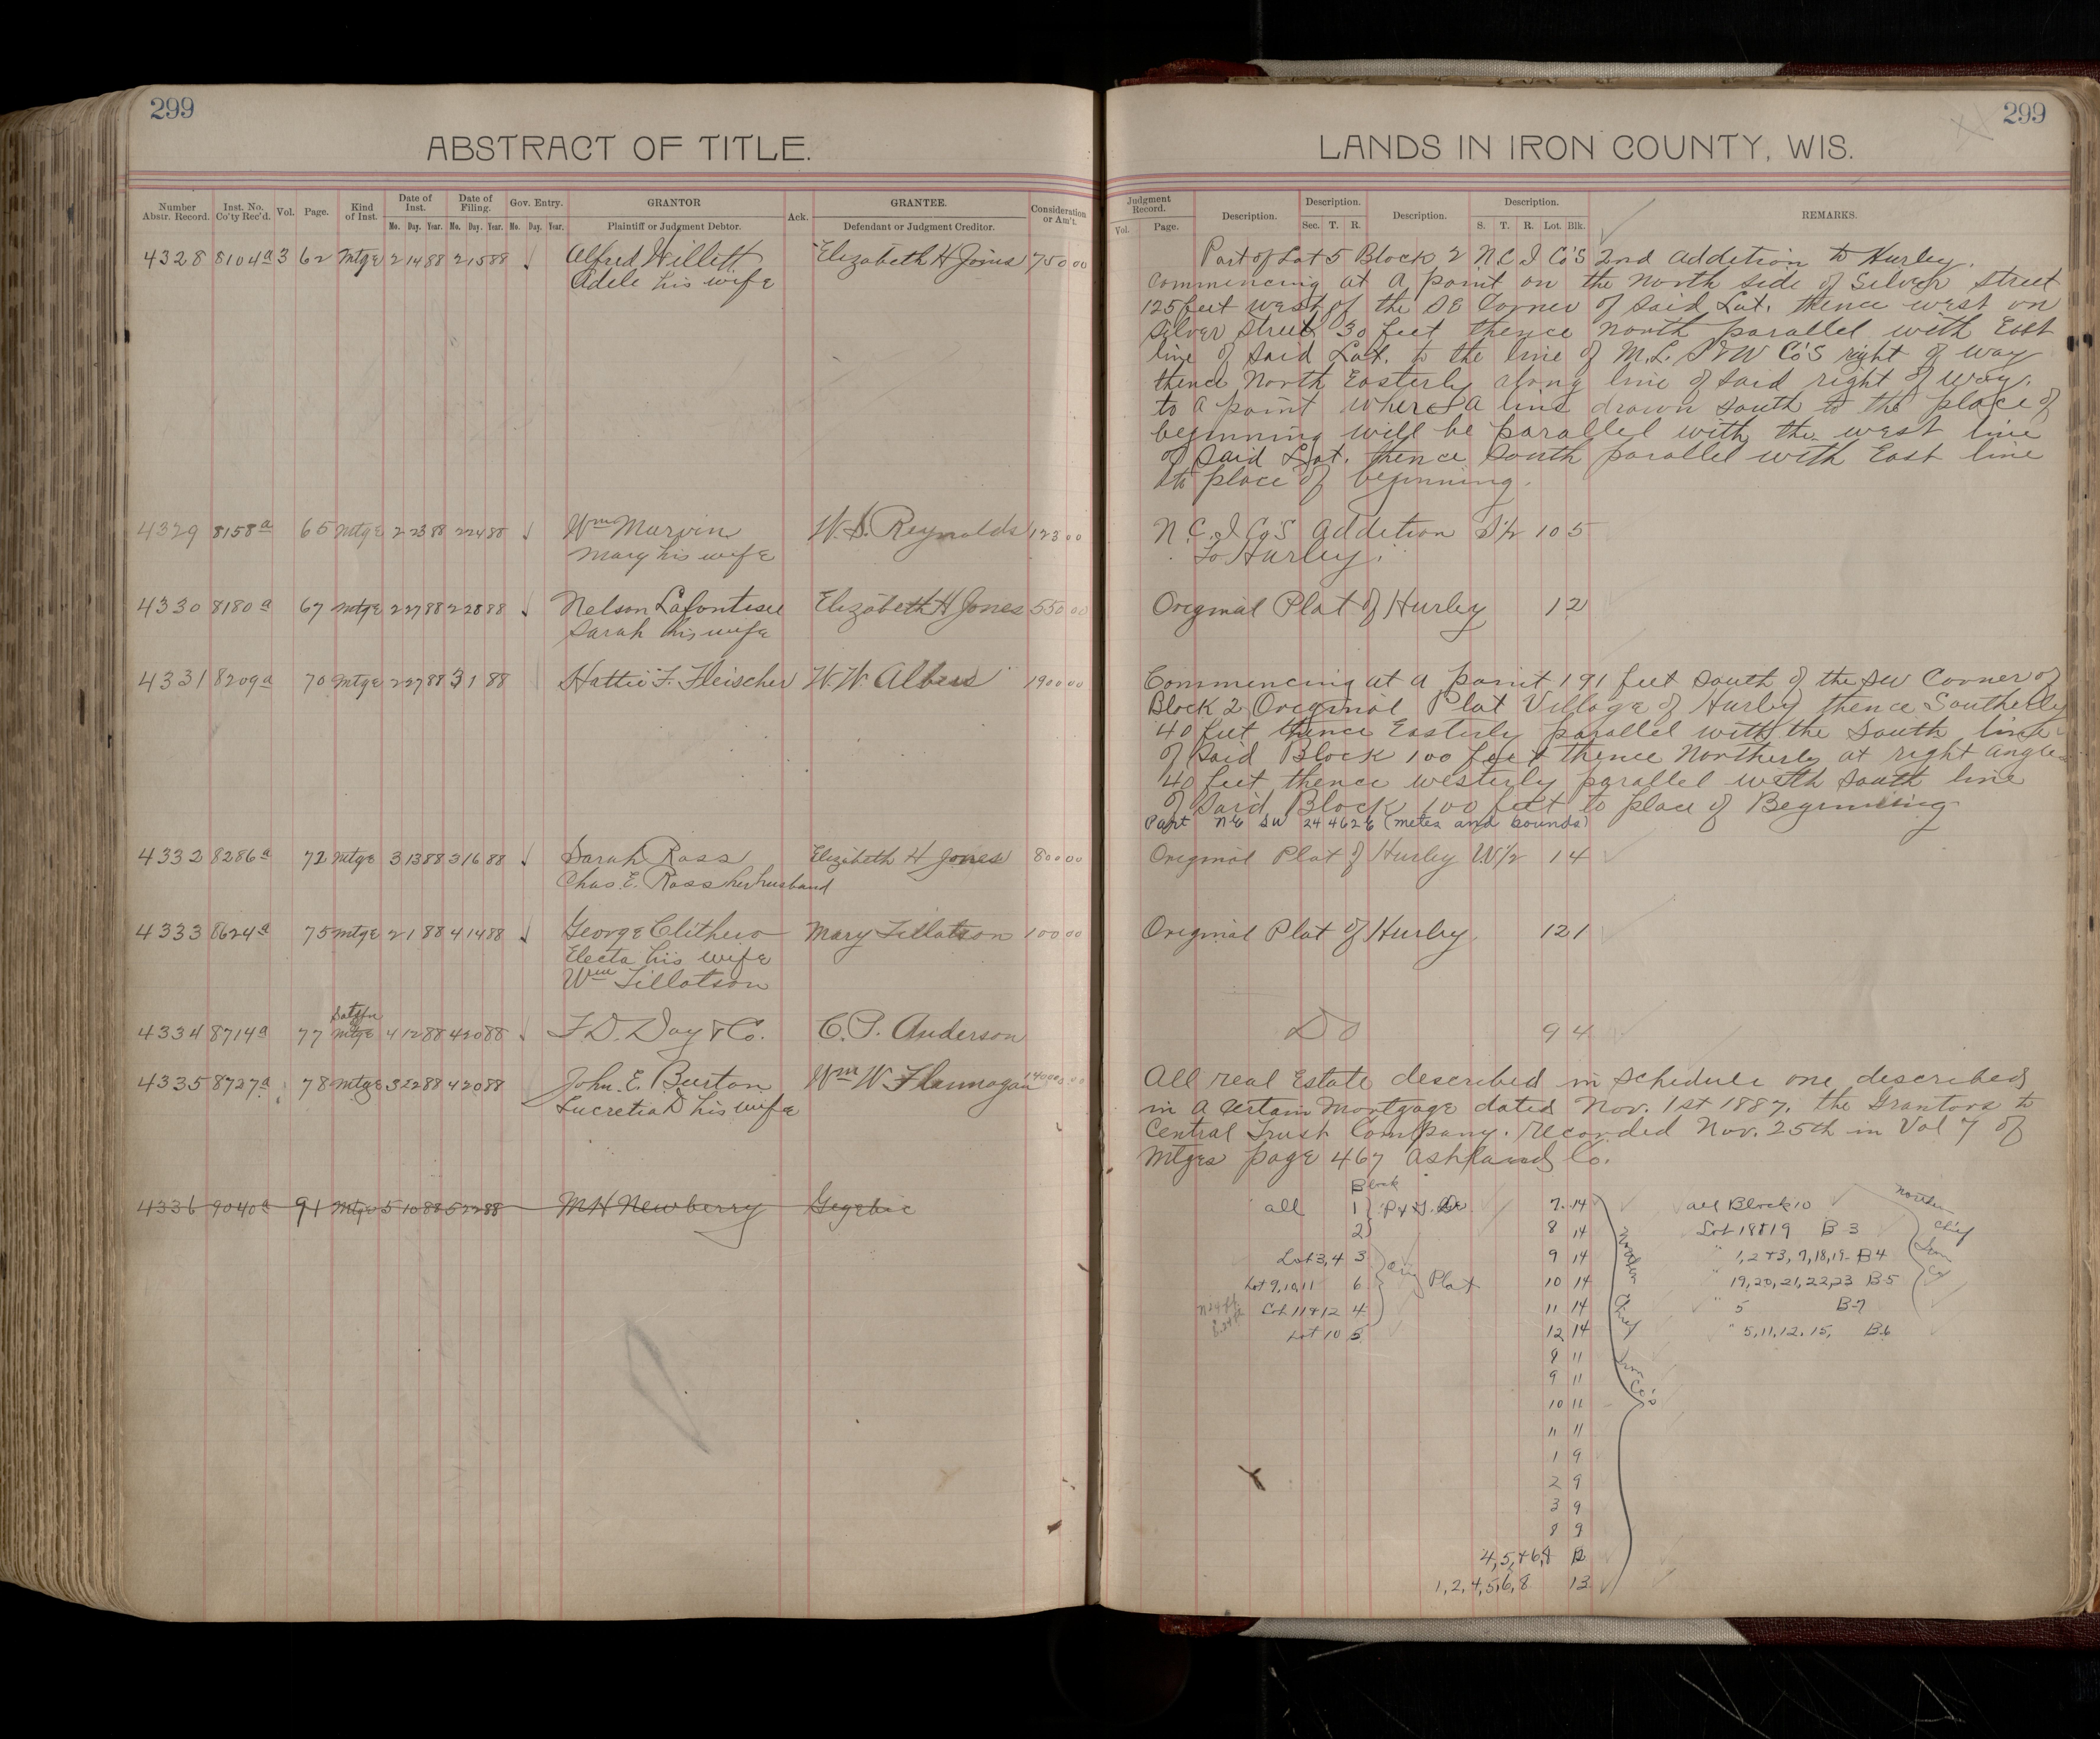 299
ABSTRACT OF TITLE.
Number Abstr. Record. Inst. No. Co'ty Rec'd. Vol. Page. Kind of Inst. Date of Inst. Date of Filing. Gov. Entry. GRANTOR Ack. GRANTEE. Consideration or Am't.
Mo. Day. Year. Mo. Day. Year. Mo. Day. Year. Plaintiff or Judgment Debtor. Defendant or Judgment Creditor.
4328 8104a 3 62 Mtge 2 14 88 2 15 88 Alfred Willett Elizabeth H Jones 750 00
Adele his wife
4329 8158a 65 Mtge 2 23 88 2 24 88 Wm Marvin W. S. Reynolds 123 00
Mary his wife
4330 8180a 67 Mtge 2 27 88 2 28 88 Nelson Elizabeth H Jones 550 00
Sarah his wife
4331 8209a 70 Mtge 2 27 88 3 1 88 Hattie F. Fleischer W. W. Albers 1900 00
4332 8286a 72 Mtge 3 13 88 3 16 88 Sarah Ross Elizabeth H Jones 80 00
Chas. E. Ross her husband
4333 8624a 75 Mtge 2 1 88 4 14 88 George Clithero Mary Tillotson 100 00
Electa his wife
Wm Tillotson
4334 8714a 77 Mtge 4 12 88 4 20 88 F. D. Day & Co. C. P. Anderson
4335 8727a 78 Mtge 3 22 88 4 20 88 John. E. Burton Wm W. Flannagan
Lucretia D his wife
4336 9040a 91 Mtge 5 10 88 5 22 88 M H Newberry Gogebic
299
LANDS IN IRON COUNTY, WIS.
Judgment Record. Description. Description. Description. Description. REMARKS.
Vol. Page. Sec. T. R. S. T. R. Lot. Blk.
Part of Lot 5 Block 2 N C I Co'S 2nd Addition to Hurley.
Commencing at a point on the North side of Silver Street
125 feet west of the SE Corner of said Lot. thence west on
Silver Street 30 feet thence North parallel with East
line of said Lot. to the line of M. L. S & W Co'S right of way
thence North Easterly along line of said right of way.
to a point where a line drawn south to the place of
beginning will be parallel with the west line
of said Lot. thence South parallel with East line
to place of beginning.
N. C. I Co'S Addition S½ 10 5
To Hurley.
Original Plat of Hurley 1 2
Commencing at a point 191 feet South of the SW Corner of
Block 2 Original Plat Village of Hurley thence Southerly
40 feet thence Easterly parallel with the South line
of Said Block 100 feet thence Northerly at right angles
40 feet thence westerly parallel with South line
of Said Block 100 feet to place of Beginning
Part NE SW 24 46 2 E (metes and bounds)
Original Plat of Hurley W½ 1 4
Original Plat of Hurley 12 1
Do 9 4
All real Estate described in Schedule one described
in a certain mortgage dated Nov. 1st 1887. the Grantors to
Central Trust Company. recorded Nov. 25th in Vol 7 of
Mtges page 467 Ashland Co.
Block
all 1
2
Lot 3,4 3
Lot 9,10,11 6 Orig Plat
Lot 11 & 12 4
Lot 10 5
7 14
8 14
9 14
10 14
11 14
12 14
8 11
9 11
10 11
11 11
1 9
2 9
3 9
8 9
4, 5, & 6, 8 12
1, 2, 4, 5, 6, 8 13
Northern Chief Iron Co's
all Block 10
Lot 18 & 19 B 3
" 1, 2 & 3, 7, 18, 19 - B 4
19, 20, 21, 22, 23 B 5
" 5 B-7
" 5, 11, 12, 15, B-6
Northern Chief Iron Co